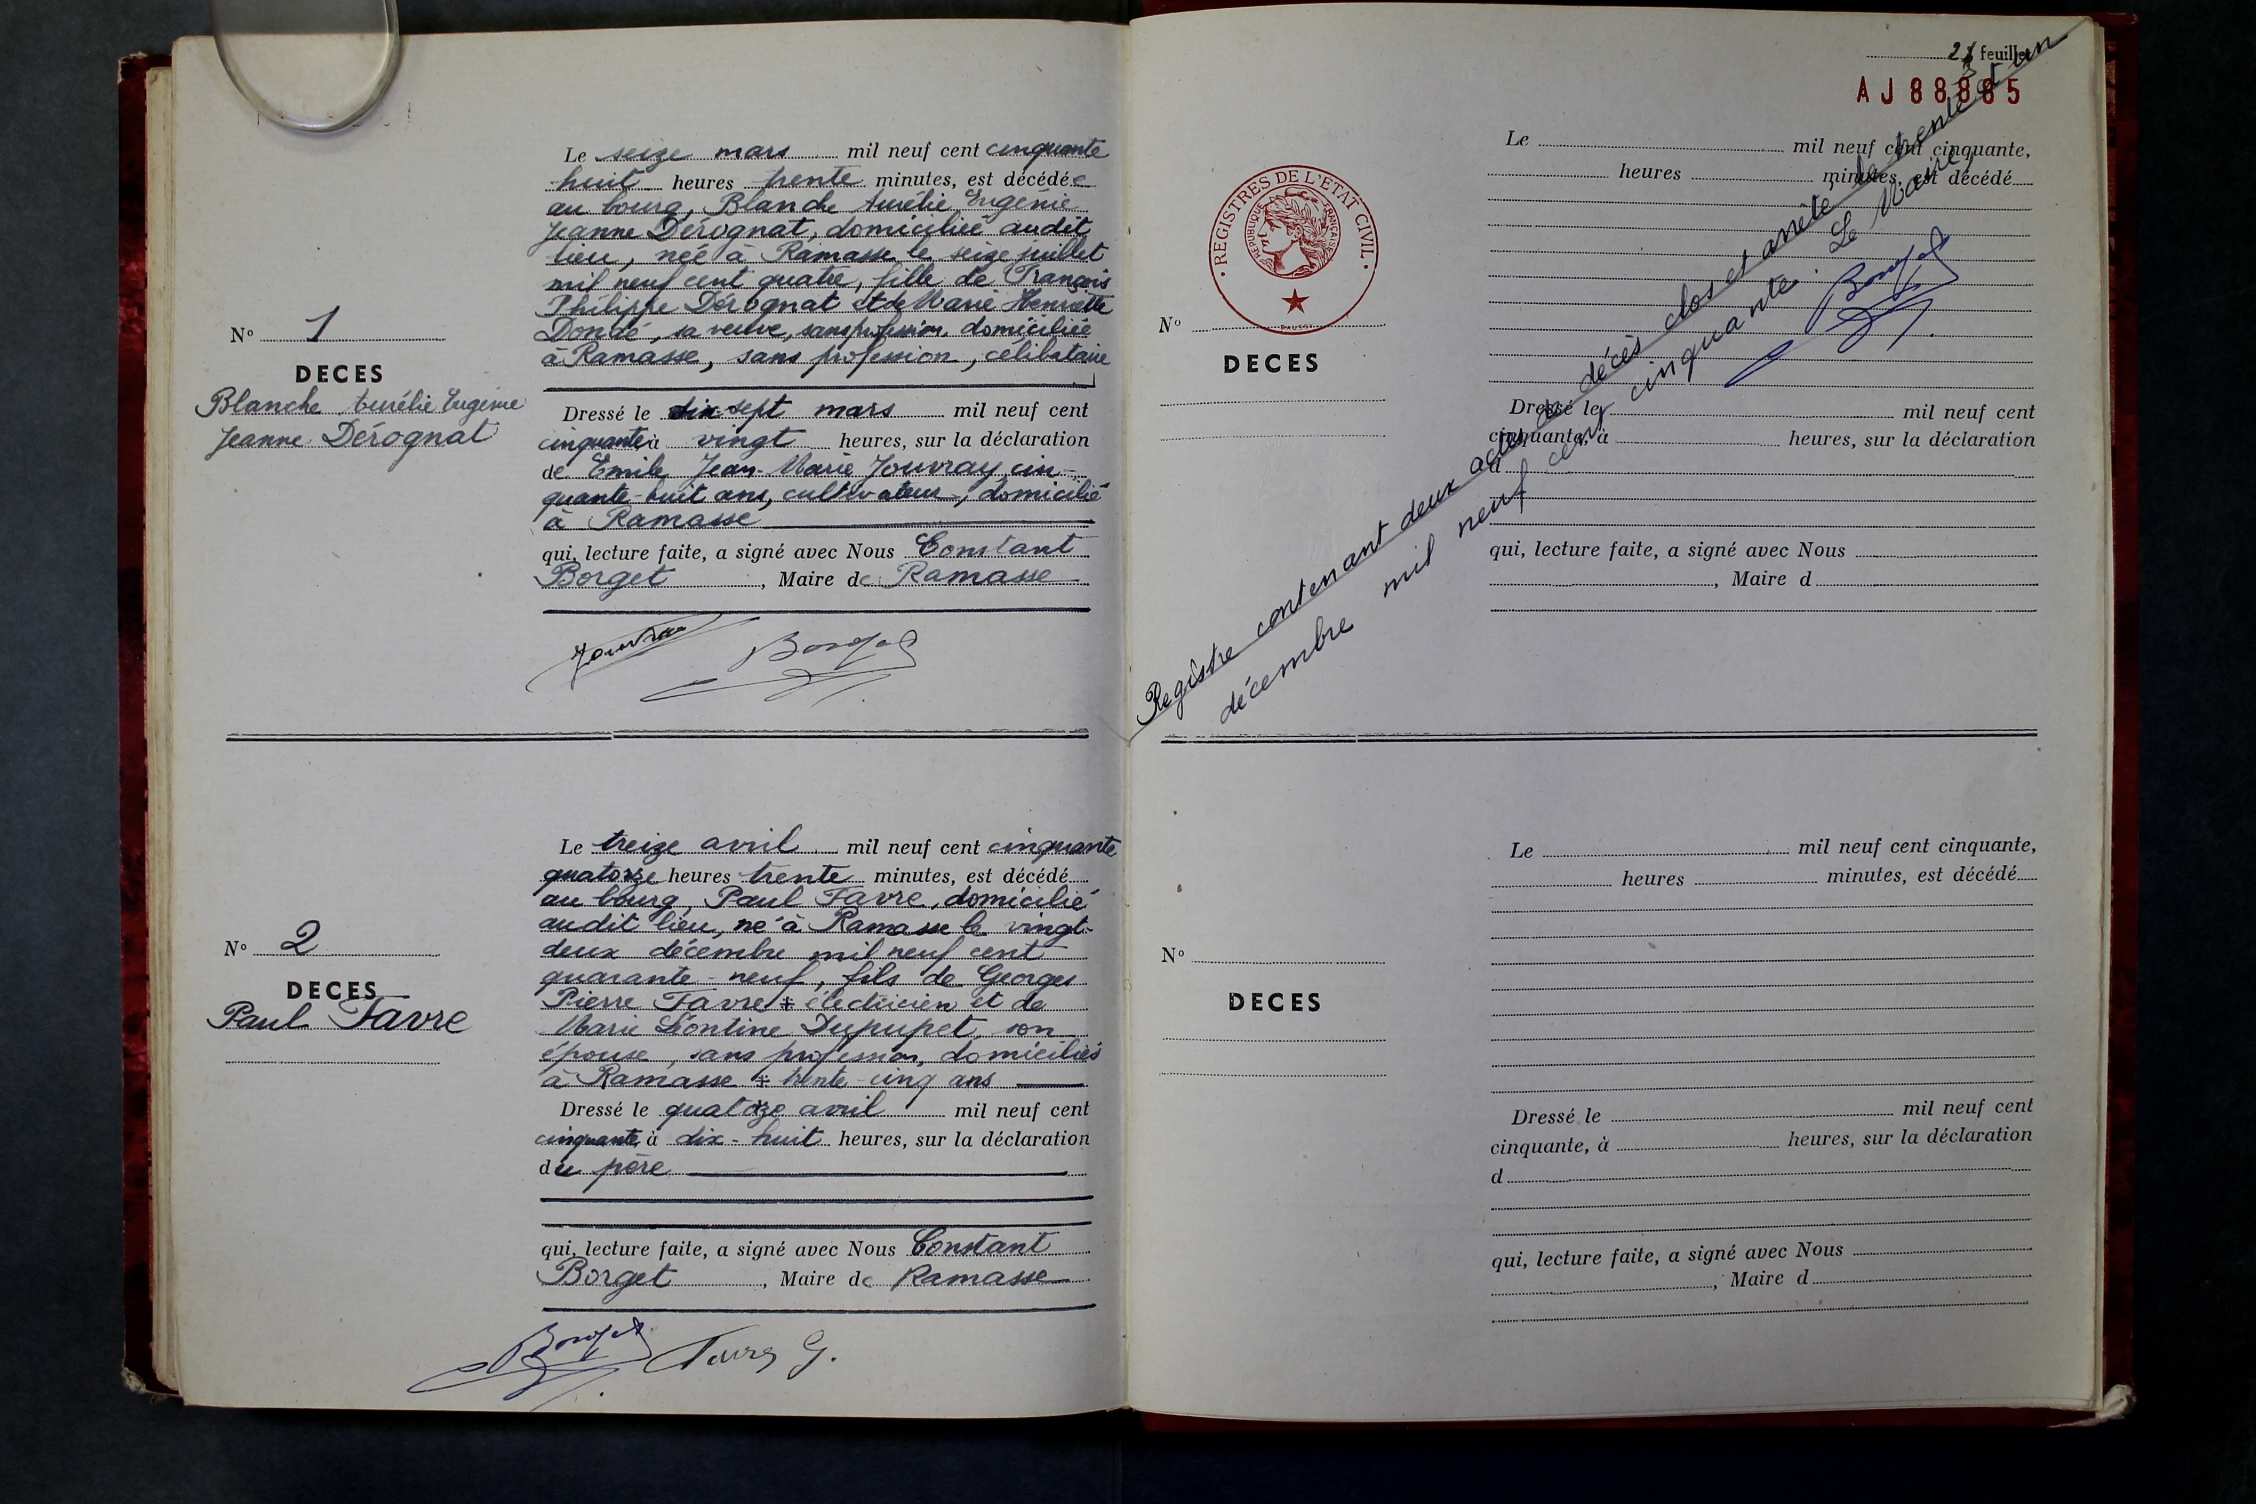 Le seize mars mil neuf cent cinquante
huit heures trente minutes, est décédée
au bourg, Blanche Aurélie Eugénie
Jeanne Dérognat, domiciliée audit
lieu, née à Ramasse le seize juillet
mil neuf cent quatre, fille de François
Philippe Dérognat et de Marie Henriette
Dondé, sa veuve, sans profession, domiciliée
à Ramasse, sans profession, célibataire
N° 1
DECES
Blanche Aurélie Eugénie
Jeanne Dérognat
Dressé le dix-sept mars mil neuf cent
cinquante à vingt heures, sur la déclaration
de Emile Jean-Marie Jouvray cin-
quante-huit ans, cultivateur, domicilié
à Ramasse
qui, lecture faite, a signé avec Nous Constant
Borget, Maire de Ramasse
Jouvray Borget
Le treize avril mil neuf cent cinquante
quatorze heures trente minutes, est décédé
au bourg, Paul Favre, domicilié
audit lieu, né à Ramasse le vingt-
deux décembre mil neuf cent
quarante-neuf, fils de Georges
Pierre Favre + électricien et de
Marie Léontine Dupupet, son
épouse, sans profession, domiciliés
à Ramasse + trente-cinq ans
N° 2
DECES
Paul Favre
Dressé le quatorze avril mil neuf cent
cinquante à dix-huit heures, sur la déclaration
du père
qui, lecture faite, a signé avec Nous Constant
Borget, Maire de Ramasse
Borget Favre G.
feuillet
AJ88885
Le mil neuf cent cinquante,
heures minutes, est décédé
REGISTRES DE L'ETAT CIVIL
REPUBLIQUE FRANÇAISE
N°
DECES
Dressé le mil neuf cent
cinquante, à heures, sur la déclaration
d
qui, lecture faite, a signé avec Nous
, Maire d
Registre contenant deux actes de décès clos et arrêté le trente et un
décembre mil neuf cent cinquante. Le Maire,
Borget
Le mil neuf cent cinquante,
heures minutes, est décédé
N°
DECES
Dressé le mil neuf cent
cinquante, à heures, sur la déclaration
d
qui, lecture faite, a signé avec Nous
, Maire d